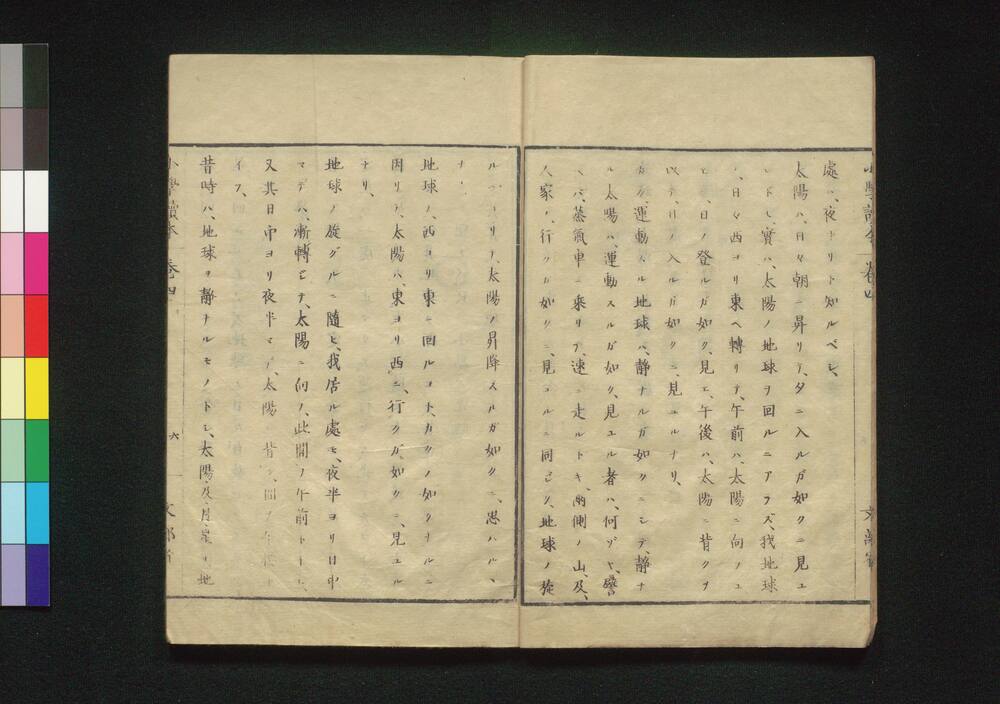 小學讀本 卷四 文部省
處ハ、夜ナリト知ルベシ、
太陽ハ、日々朝ニ昇リテ、夕ニ入ルガ如クニ見ユ
レドモ、實ハ、太陽ノ地球ヲ回ルニアラズ、我地球
ノ、日々西ヨリ東ヘ轉リテ、午前ハ、太陽ニ向フユ
ヱ、日ノ登ルガ如ク、見エ、午後ハ、太陽ニ背クヲ
以テ、日ノ入ルガ如クニ、見ユルナリ、
運動スル地球ハ、靜ナルガ如クニシテ、靜ナ
ル太陽ハ、運動スルガ如ク、見エル者ハ、何ゾヤ、譬
ヘバ、蒸氣車ニ乘リテ、速ニ走ルトキ、兩側ノ山、及、
人家ノ、行クガ如クニ、見ユルニ同ジク、地球ノ旋
ルニヨリテ、太陽ノ昇降スルガ如クニ、思ハルヽ
ナリ、
地球ノ、西ヨリ東ニ回ルコト、カクノ如クナルニ
因リテ、太陽ハ、東ヨリ西ニ、行クガ、如クニ、見エル
ナリ、
地球ノ旋グルニ隨ヒ、我居ル處モ、夜半ヨリ日中
マデハ、漸轉ジテ、太陽ニ向フ、此間ヲ午前トイヒ、
又其日中ヨリ夜半マデ、太陽ニ背ク、間ヲ午後ト
イフ、
昔時ハ、地球ヲ靜ナルモノトシ、太陽、及、月、星ヲ地
小學讀本 卷四 六 文部省